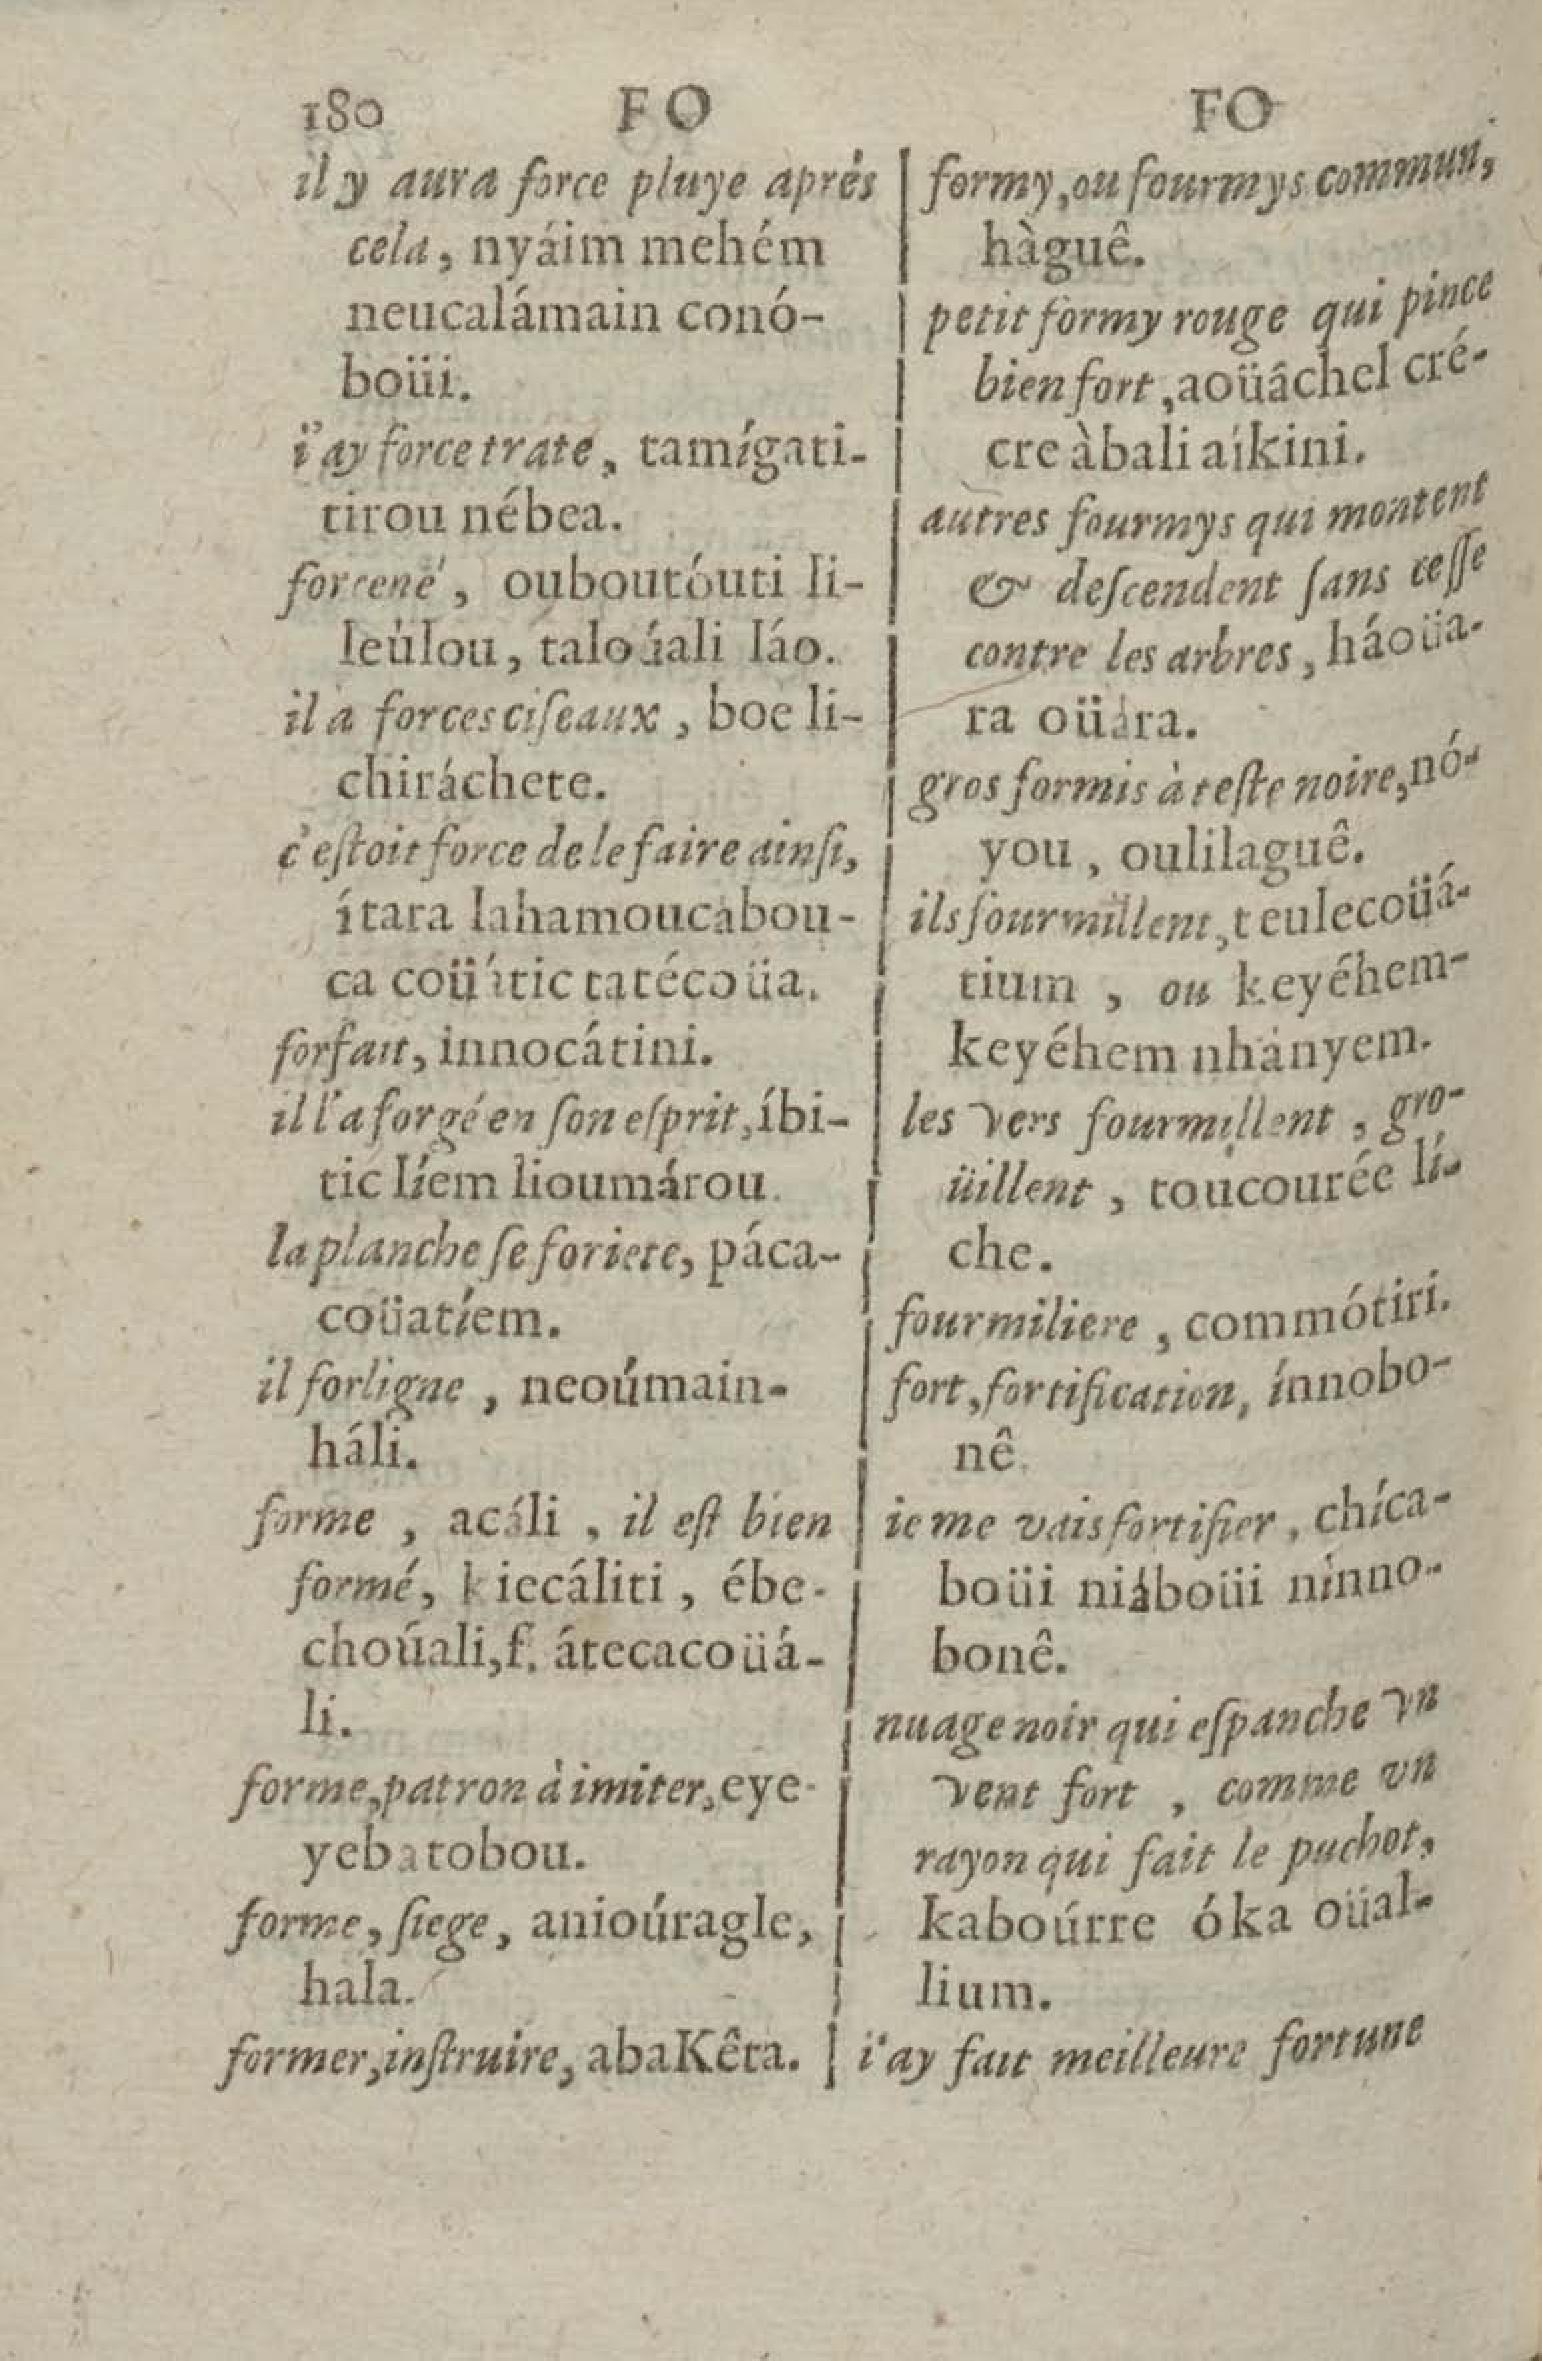 180 FO FO
il y aura force pluye aprés
cela, nyáim mehém
neucalámain conó-
boüi.
i'ay force traté, tamígati-
tirou nébea.
forcené, ouboutóuti li-
leùlou, taloúali láo.
il a forces ciſeaux, boe li-
chiráchete.
c'eſtoit force de le faire ainſi,
ítara lahamoucabou-
ca coüátic tatécoüa.
forfait, innocátini.
il l'a forgé en ſon eſprit, íbi-
tic líem lioumárou.
la planche ſe foriete, páca-
coüatíem.
il forligne, neoúmain-
háli.
forme, acáli, il eſt bien
formé, kiecáliti, ébe-
choúali, f. átecacoüá-
li.
forme, patron à imiter, eye-
yebatobou.
forme, ſiege, anioúragle,
hala.
former, inſtruire, abaKêta.
formy, ou fourmys commun,
hàguê.
petit formy rouge qui pince
bien fort, aoüáchel cré-
cre àbali aíkini.
autres fourmys qui montent
& deſcendent ſans ceſſe
contre les arbres, háoüa-
ra oüára.
gros formis à teſte noire, nó-
you, oulilaguê.
ils fourmillent, teulecoüá-
tium, ou keyéhem-
keyéhem nhányem.
les vers fourmillent, gro-
üillent, toucourée lí-
che.
fourmiliere, commótiri.
fort, fortification, ínnobo-
nê.
ie me vais fortifier, chíca-
boüi niáboüi nínno-
bonê.
nuage noir qui eſpanche vn
vent fort, comme vn
rayon qui fait le puchot,
kaboúrre óka oüal-
lium.
i'ay fait meilleure fortune